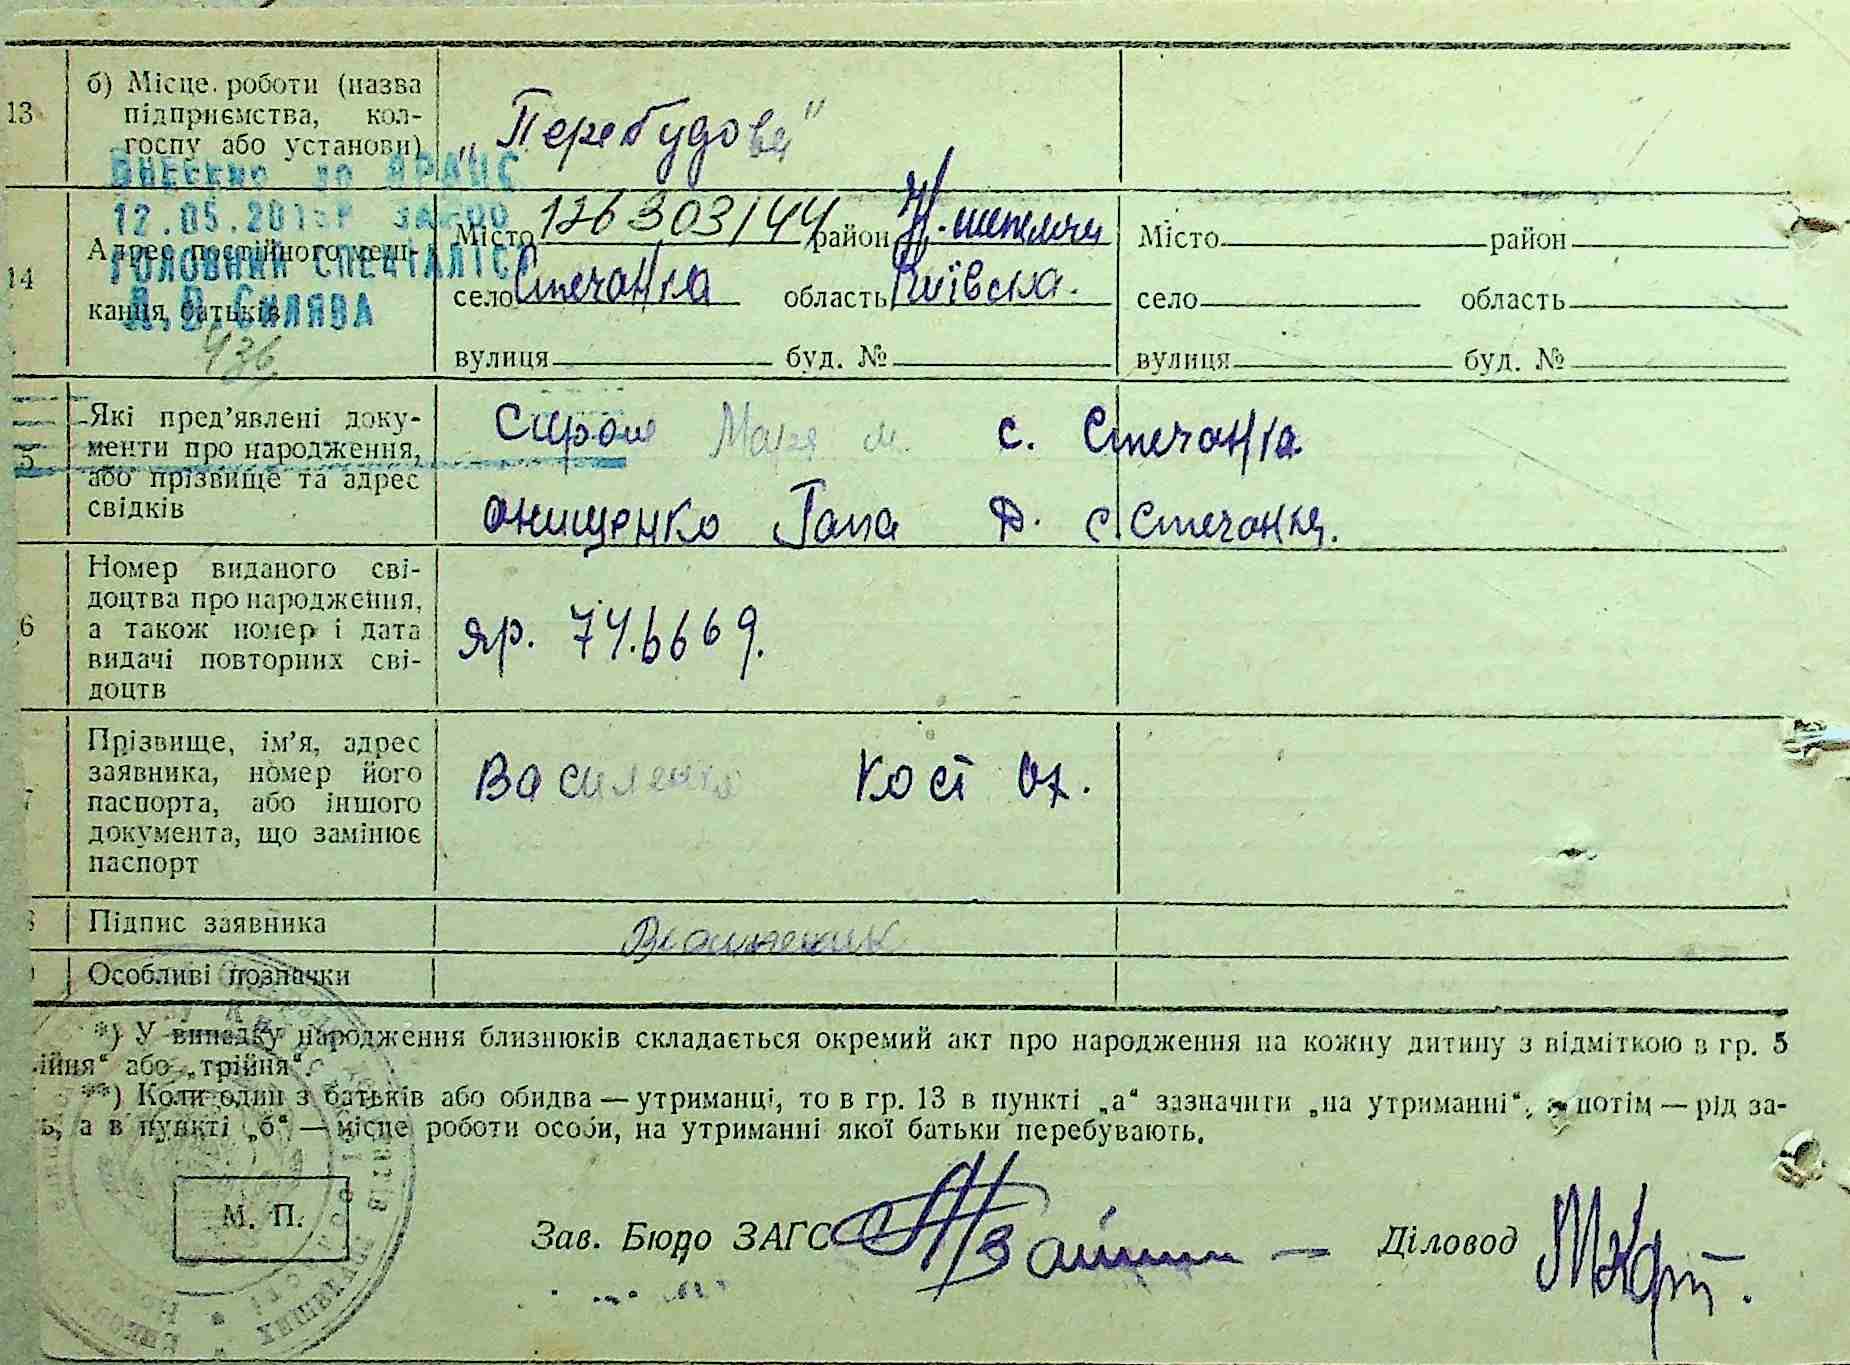 13 б) Місце роботи (назва
підприємства, кол-
госпу або установи)
„Перебудова“
ВНЕСЕНО ДО ДРАЦС
12.05.201
ГОЛОВНИЙ СПЕЦІАЛІСТ
14 Адрес постійного меш-
кання батьків
436
Місто 126303144 район Н.-шепеличи
село Стечанка область Київська.
вулиця буд. №
Місто район
село область
вулиця буд. №
5 Які пред’явлені доку-
менти про народження,
або прізвище та адрес
свідків
Марія М. с. Стечанка.
Онищенко Гапа Д. с Стечанка.
6 Номер виданого сві-
доцтва про народження,
а також номер і дата
видачі повторних сві-
доцтв
яр. 746669.
7 Прізвище, ім’я, адрес
заявника, номер його
паспорта, або іншого
документа, що замінює
паспорт
Василенко Кост Ох.
8 Підпис заявника
Особливі позначки
*) У випадку народження близнюків складається окремий акт про народження на кожну дитину з відміткою в гр. 5
ійня“ або „трійня“.
**) Коли один з батьків або обидва — утриманці, то в гр. 13 в пункті „а“ зазначити „на утриманні“, а потім — рід за-
ь, а в пункті „б“ — місце роботи особи, на утриманні якої батьки перебувають.
М. П.
Зав. Бюро ЗАГС Діловод